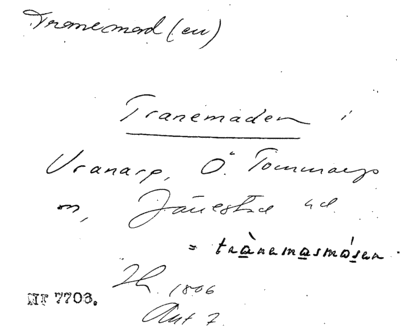 Tranemad (en)
Tranemaden i
Vranarp, Ö. Tommarps
sn, Järrestad hd.
= trànemasmósen
Lh. 1806
Akt 7.
NF 7703.